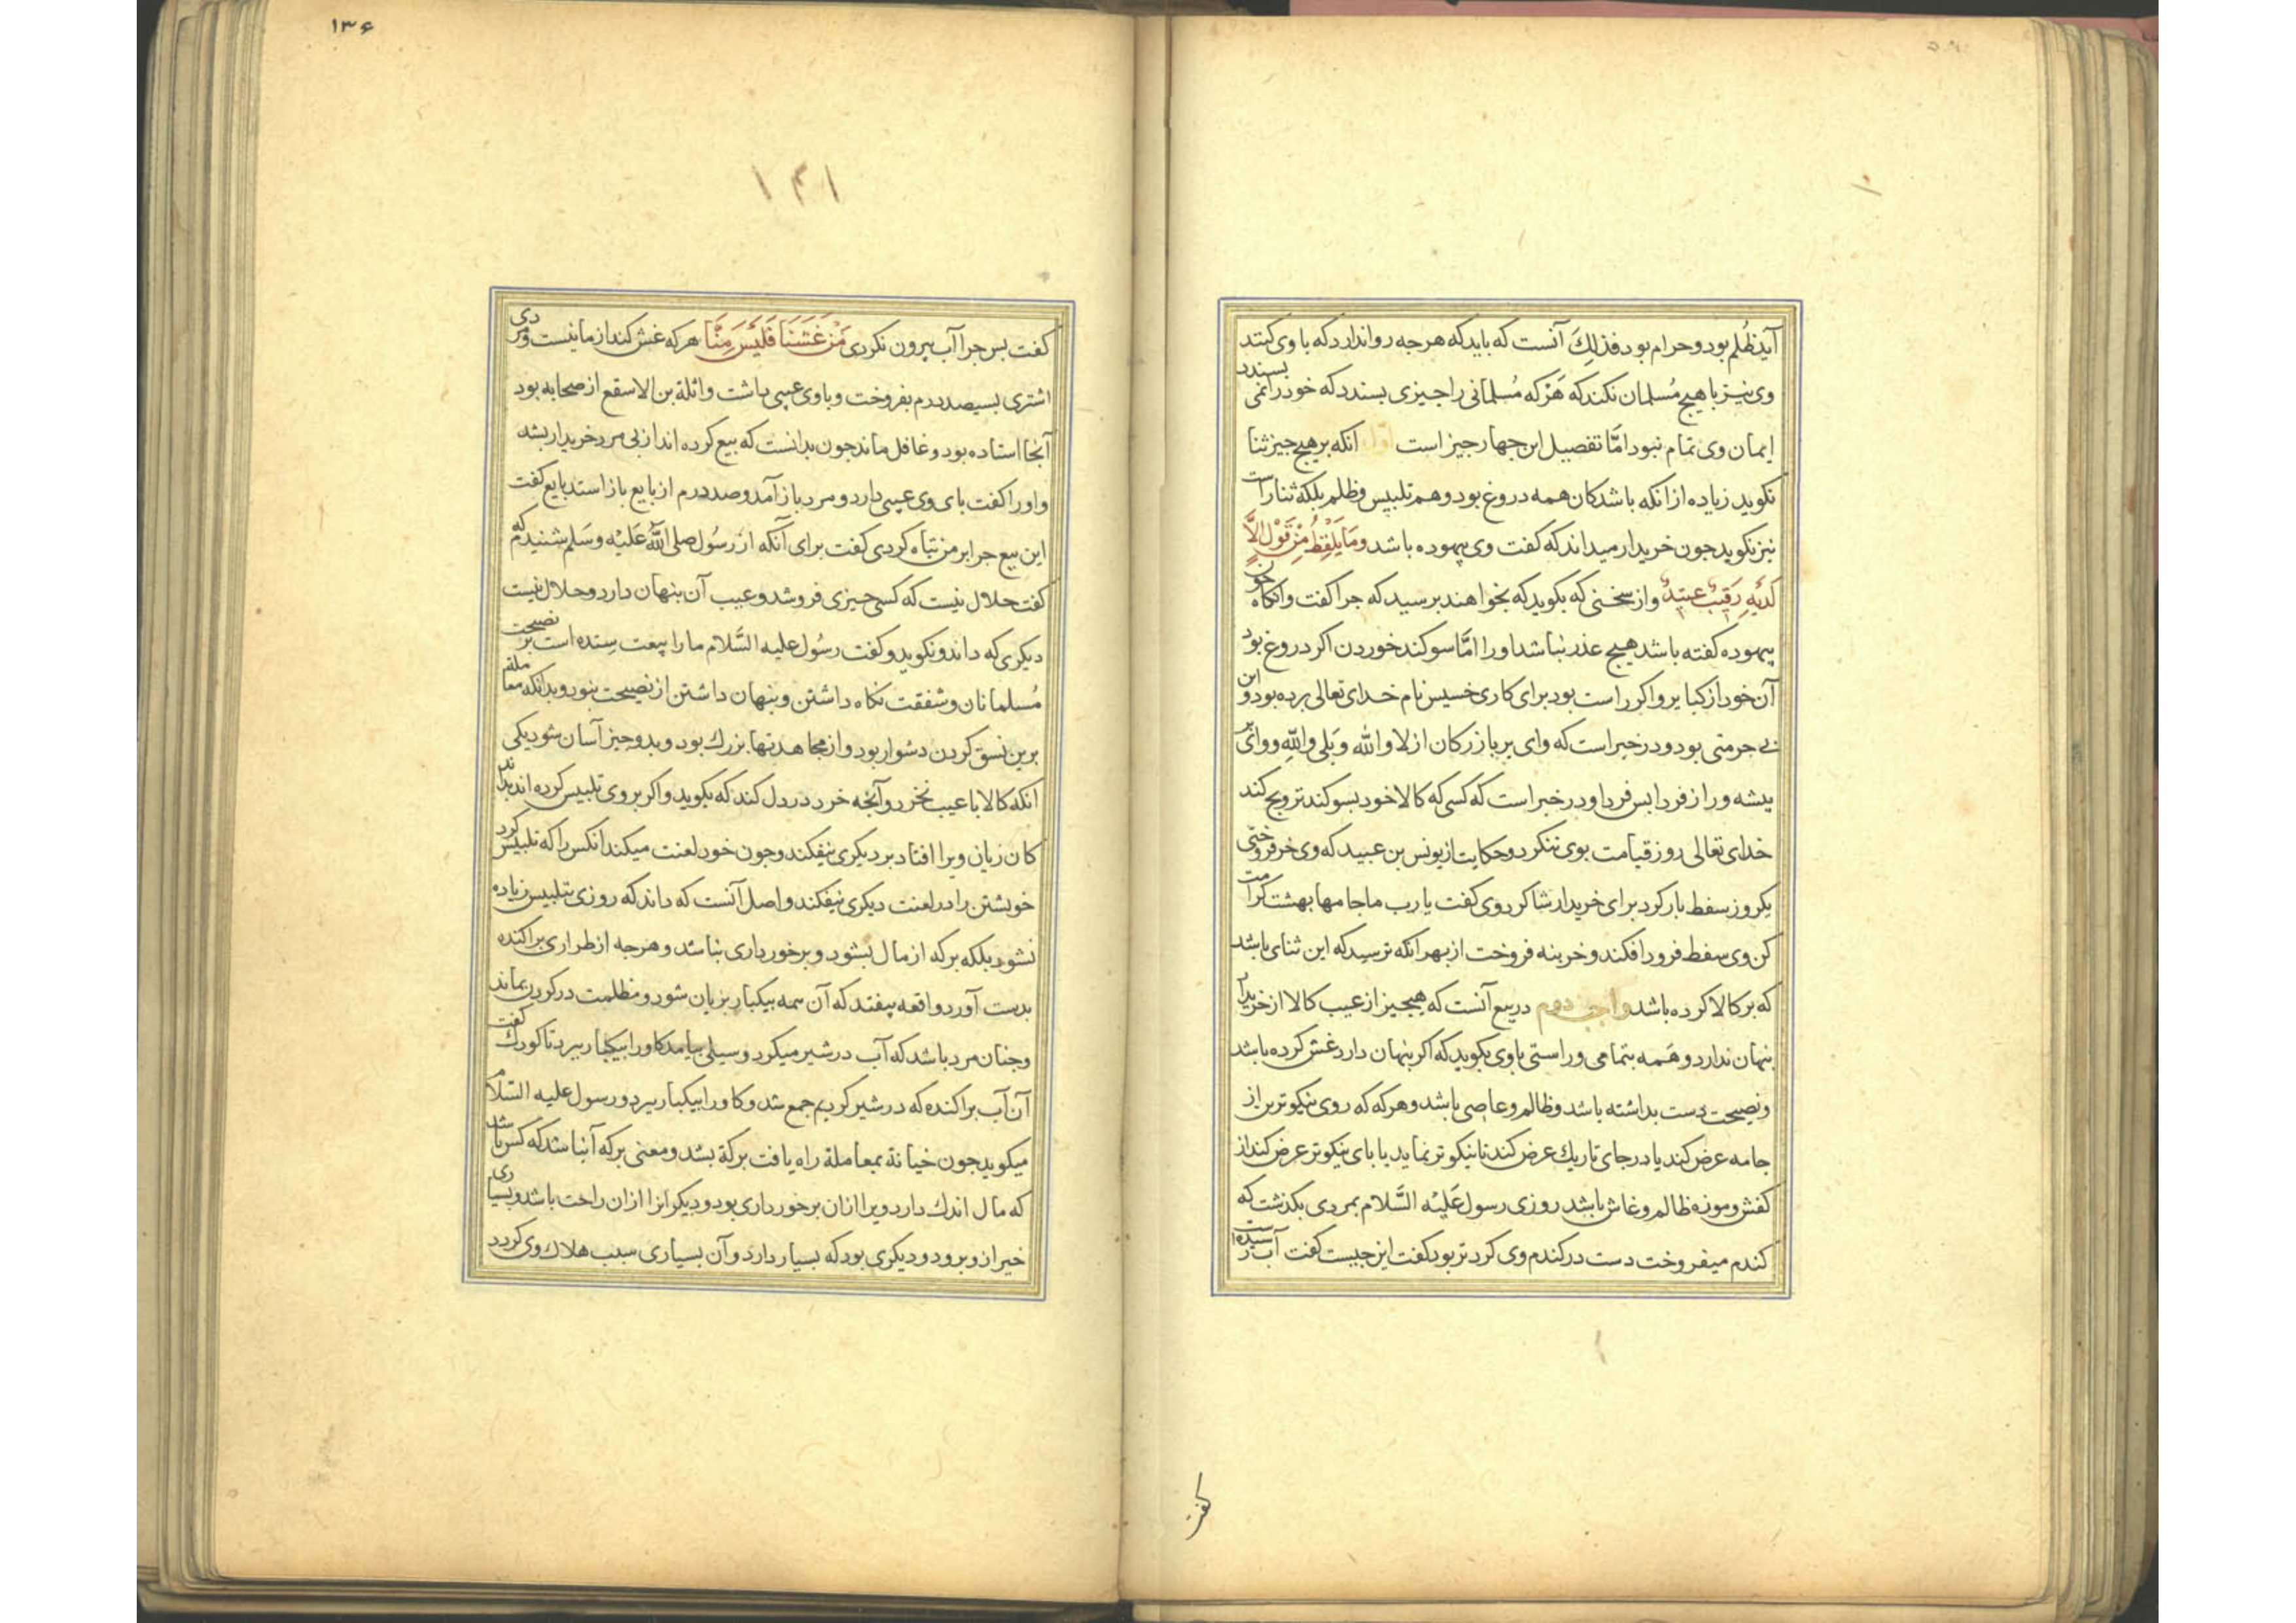 آید ظُلم بود و حرام بود فذلِكَ آنست که باید که هرجه روا ندارد که با وی کنند
وی نیز با هیچ مُسلمان نکند که هَرکه مُسلمانی را جیزی بسندد که خود را نمی بسندد
ایمان وی تمام نبود امّا تفصیل این جهار جیز است اول انکه بر هیچ جیز ثنا
نکوید زیاده از انکه باشد کان همه دروغ بود و هم تلبیس و ظلم بلکه ثنا راست
نیز نکوید جون خریدار میداند که کفت وی بیهوده باشد وَمَا یَلْفِظُ مِنْ قَوْلٍ الاَّ
لَدَیْهِ رَقِیبٌ عَتِیدٌ و از سخنی که بکوید که بخواهند برسید که جرا کفت وانکاه جون
بیهوده کفته باشد هیچ عذر نباشد او را امّا سوکند خوردن اکر دروغ بود
آن خود از کبایر و اکر راست بود برای کاری خسیس نام خدای تعالی برده بود و این
بی حرمتی بود و در خبر است که وای بر بازرکان از لا والله و بَلی واللهِ و وای بر
بیشه ور از فردا بس فردا و در خبر است که کسی که کالا خود بسوکند ترویج کند
خدای تعالی روز قیامت بوی ننکرد و حکایت از یونس بن عبید که وی خز فروختی
یکروز سفط بار کرد برای خریدار شاکرد وی کفت یا رب ما جامها بهشت کرامت
کن وی سفط فرود افکند و خز بنه فروخت از بهر انکه ترسید که این ثنای باشد
که بر کالا کرده باشد واجب دوم در بیع آنست که هیجیز از عیب کالا از خریدار
بنهان ندارد و هَمه بتمامی و راستی با وی بکوید که اکر بنهان دارد غش کرده باشد
و نصیحت دست بداشته باشد و ظالم و عاصی باشد و هرکه که روی نیکوترین از
جامه عرض کند یا در جای تاریك عرض کند تا نیکوتر نماید یا بای نیکوتر عرض کند از
کفش و موزه ظالم و غاش باشد روزی رسول عَلَیْه السَّلام بمردی بکذشت که
کندم میفروخت دست در کندم وی کرد تر بود کفت این جیست کفت آب رسیده است
کفت
۱۳۶
۱۴۱
کفت بس جرا آب بیرون نکردی مَنْ غَشَّنَا فَلَیْسَ مِنَّا هرکه غش کند از ما نیست و مردی
اشتری بسیصد درم بفروخت و با وی عیبی داشت واثلة بن الاسقع از صحابه بود
آنجا استاده بود و غافل ماند جون بدانست که بیع کرده اند از بی مرد خریدار بشد
و او را کفت بای وی عیبی دارد و مرد باز آمد و صد درم از بایع باز استد بایع کفت
این بیع جرا بر من تباه کردی کفت برای آنکه از رسُول صلی اللهُ عَلَیْه وسَلم شنیدم که
کفت حلال نیست که کسی جیزی فروشد و عیب آن بنهان دارد و حلال نیست
دیکری که داند و نکوید و کفت رسُول علیه السَّلام ما را بیعت ستده است بر نصیحت
مُسلمانان و شفقت نکاه داشتن و بنهان داشتن از نصیحت نبود و بدانکه معاملة
برین نسق کردن دشوار بود و از مجاهدتها بزرك بود و بدو جیز آسان شود یکی
انکه کالا با عیب نخرد و آنجه خرد در دل کند که بکوید و اکر بر وی تلبیس کرده اند بداند
کان زیان ویرا افتاد بر دیکری نیفکند و جون خود لعنت میکند انکس را که تلبیس کرد
خویشتن را در لعنت دیکری نیفکند و اصل آنست که داند که روزی بتلبیس زیاده
نشود بلکه برکه از مال بشود و برخورداری نباشد و هرجه از طراری براکنده
بدست آورد واقعه بیفتد که آن همه بیکبار بزیان شود و مظلمت در کردن بماند
و جنان مرد باشد که آب در شیر میکرد و سیلی بیامد کاو را بیکبار ببرد تا کودك کفت
آن آب براکنده که در شیر کردیم جمع شد و کاو را بیکبار ببرد و رسول علیه السّلام
میکوید جون خیانة بمعاملة راه یافت برکة بشد و معنی برکه آنباشد که کس باشد
که مال اندك دارد ویرا ازان برخورداری بود و دیکرانرا ازان راحت باشد و بسیاری
خیر ازو برود و دیکری بود که بسیار دارد و آن بسیاری سبب هلاك وی کردد